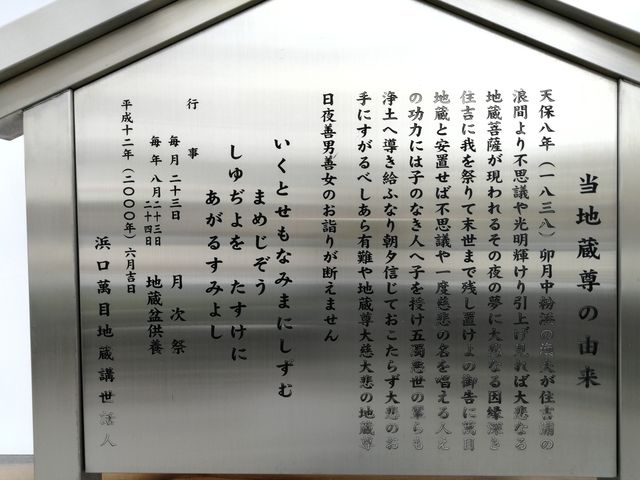 当地蔵尊の由来
天保八年（一八三八）卯月中粉浜の漁夫が住吉浦の
浪間より不思議や光明輝けり引上げ見れば大悲なる
地蔵菩薩が現われるその夜の夢に大いなる因縁深き
住吉に我を祭りて末世まで残し置けよの御告に萬目
地蔵と安置せば不思議や一度慈悲の名を唱える人え
の功力には子のなき人へ子を授け五濁悪世の輩らも
浄土へ導き給ふなり朝夕信じておこたらず大悲のお
手にすがるべしあら有難や地蔵尊大慈大悲の地蔵尊
日夜善男善女のお詣りが断えません
いくとせもなみまにしずむ
まめじぞう
しゅぢよを たすけに
あがるすみよし
行 事
毎月二十三日 月次祭
毎年八月二十三日 二十四日 地蔵盆供養
平成十二年（二〇〇〇年）六月吉日
浜口萬目地蔵講世話人